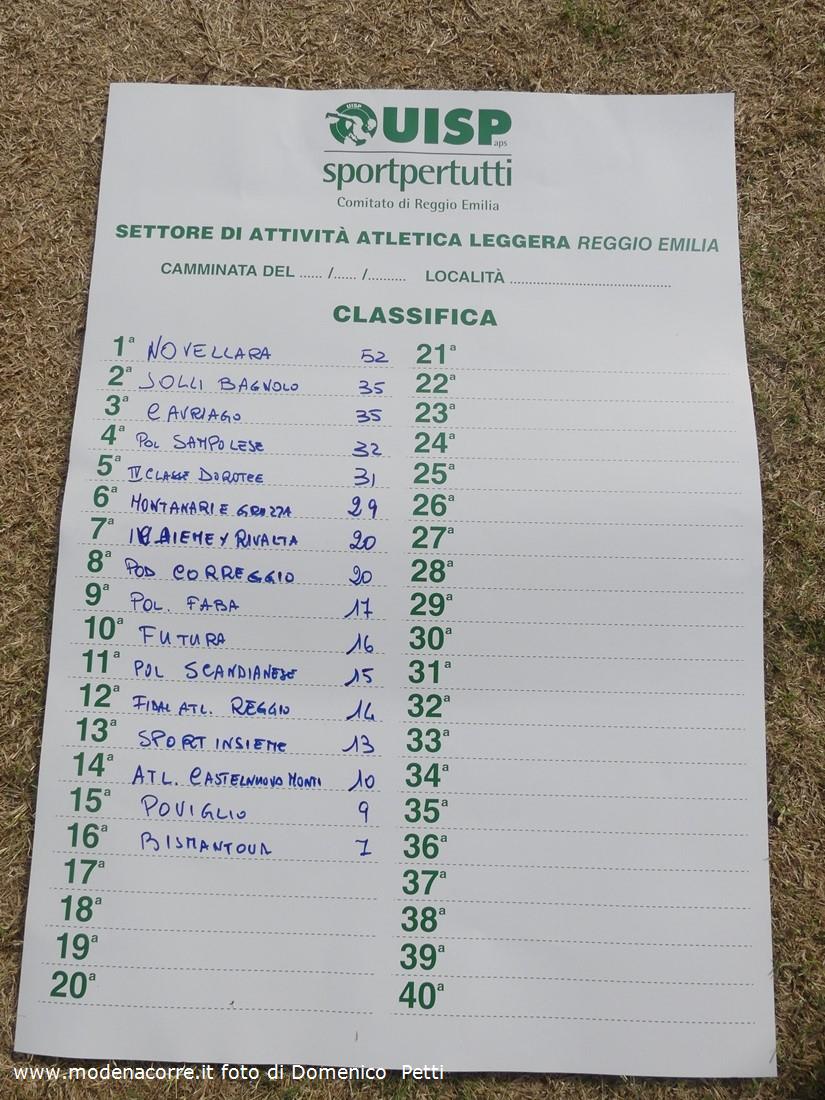 UISP
UISP
aps
sportpertutti
Comitato di Reggio Emilia
SETTORE DI ATTIVITÀ ATLETICA LEGGERA REGGIO EMILIA
CAMMINATA DEL ...... /...... /.......... LOCALITÀ ..........................................
CLASSIFICA
1ª NOVELLARA 52
2ª JOLLI BAGNOLO 35
3ª CAVRIAGO 35
4ª POL SAMPOLESE 32
5ª IV CLASSE DOROTEE 31
6ª MONTANARI E GRUZZA 29
7ª RIVALTA 20
8ª POD CORREGGIO 20
9ª POL. FABA 17
10ª FUTURA 16
11ª POL SCANDIANESE 15
12ª FIDAL ATL. REGGIO 14
13ª SPORT INSIEME 13
14ª ATL. CASTELNUOVO MONTI 10
15ª POVIGLIO 9
16ª BISMANTOVA 7
17ª
18ª
19ª
20ª
21ª
22ª
23ª
24ª
25ª
26ª
27ª
28ª
29ª
30ª
31ª
32ª
33ª
34ª
35ª
36ª
37ª
38ª
39ª
40ª
www.modenacorre.it foto di Domenico Petti